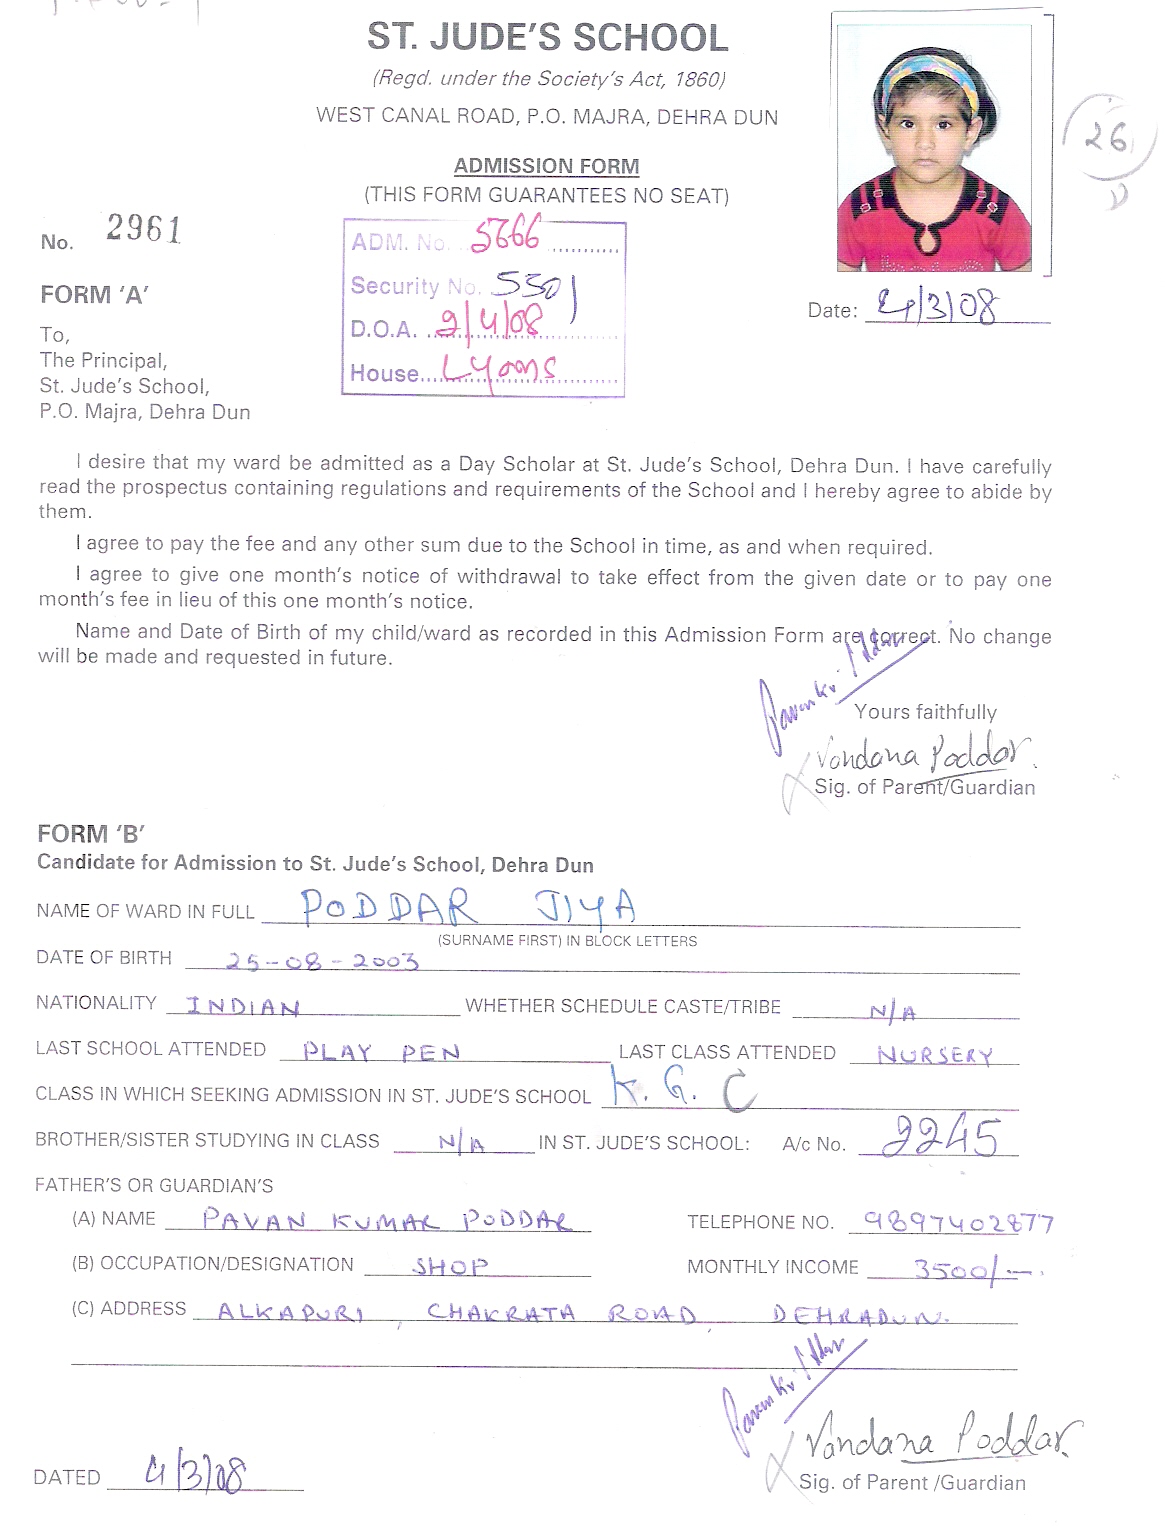 ST. JUDE'S SCHOOL
(Regd. under the Society's Act, 1860)
WEST CANAL ROAD, P.O. MAJRA, DEHRA DUN
26
ADMISSION FORM
(THIS FORM GUARANTEES NO SEAT)
No. 2961
ADM. No. 5766
Security No. 5501
D.O.A. 2/4/08
House Lyons
Date: 4/3/08
FORM 'A'
To,
The Principal,
St. Jude's School,
P.O. Majra, Dehra Dun
I desire that my ward be admitted as a Day Scholar at St. Jude's School, Dehra Dun. I have carefully
read the prospectus containing regulations and requirements of the School and I hereby agree to abide by
them.
I agree to pay the fee and any other sum due to the School in time, as and when required.
I agree to give one month's notice of withdrawal to take effect from the given date or to pay one
month's fee in lieu of this one month's notice.
Name and Date of Birth of my child/ward as recorded in this Admission Form are correct. No change
will be made and requested in future.
Yours faithfully
Vandana Poddar.
Sig. of Parent/Guardian
FORM 'B'
Candidate for Admission to St. Jude's School, Dehra Dun
NAME OF WARD IN FULL PODDAR JIYA
(SURNAME FIRST) IN BLOCK LETTERS
DATE OF BIRTH 25-08-2003
NATIONALITY INDIAN WHETHER SCHEDULE CASTE/TRIBE N/A
LAST SCHOOL ATTENDED PLAY PEN LAST CLASS ATTENDED NURSERY
CLASS IN WHICH SEEKING ADMISSION IN ST. JUDE'S SCHOOL K.G. C
BROTHER/SISTER STUDYING IN CLASS N/A IN ST. JUDE'S SCHOOL: A/c No. 2245
FATHER'S OR GUARDIAN'S
(A) NAME PAVAN KUMAR PODDAR TELEPHONE NO. 9897402877
(B) OCCUPATION/DESIGNATION SHOP MONTHLY INCOME 3500/-
(C) ADDRESS ALKAPURI, CHAKRATA ROAD, DEHRADUN.
Vandana Poddar.
DATED 4/3/08
Sig. of Parent /Guardian